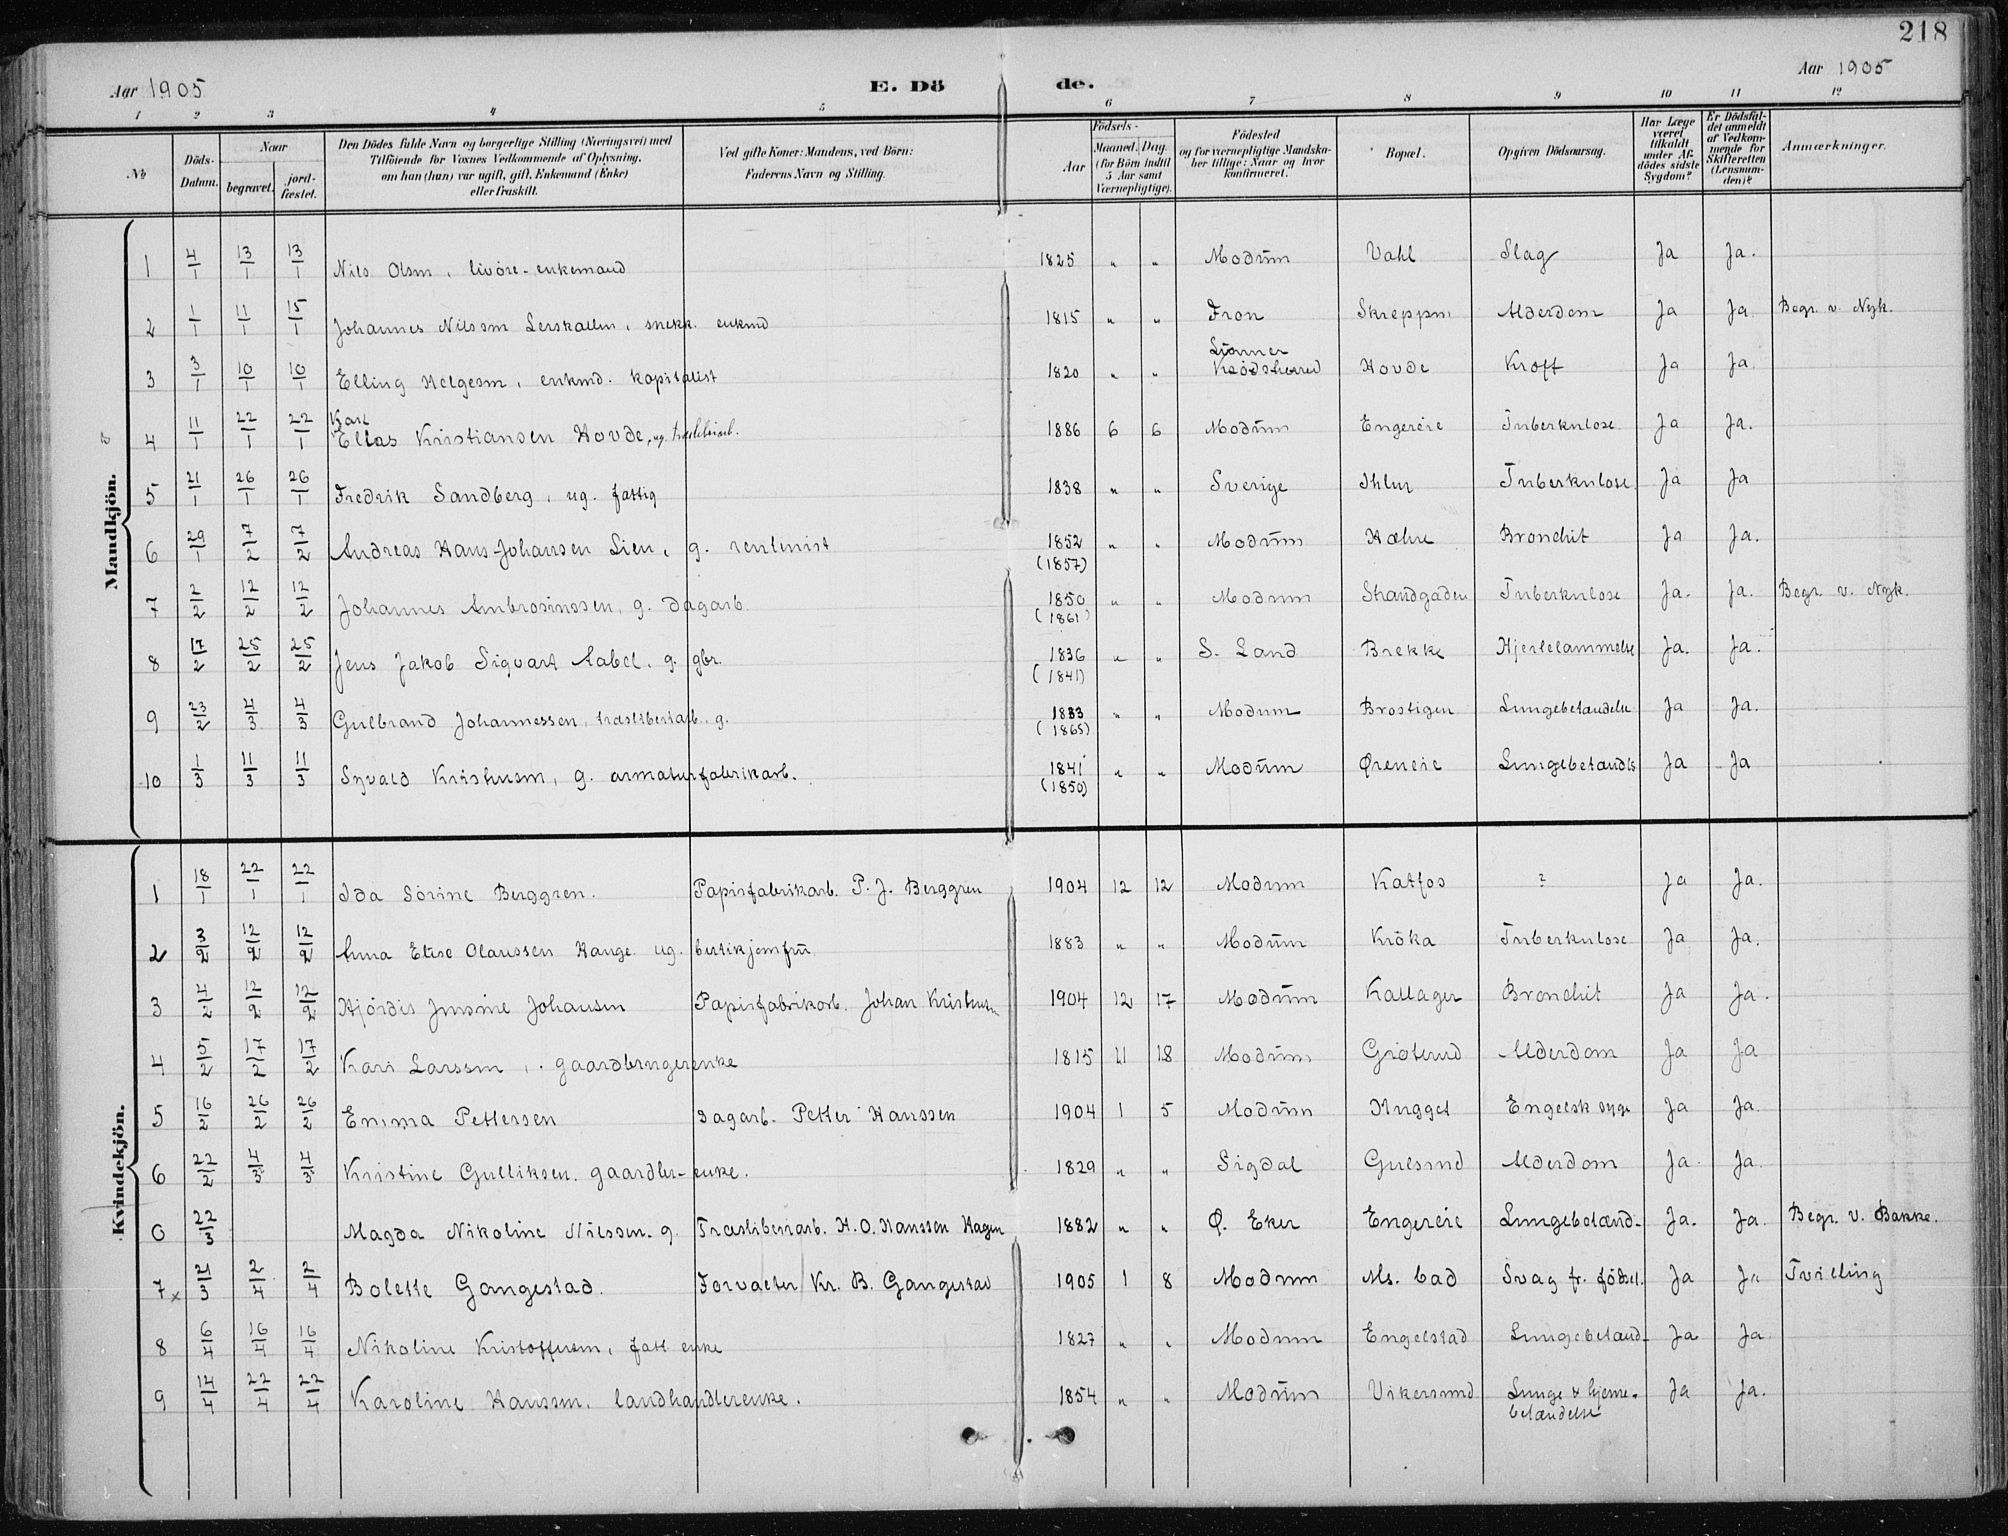 218
Aar 1905 E. Dö de. Aar 1905
1 2 3 4 5 6 7 8 9 10 11 12
No Döds-Datum. Naar begravet. jord-fæstet. Den Dödes fulde Navn og borgerlige Stilling (Næringsvei) med Tilföiende for Voxnes Vedkommende af Oplysning, om han (hun) var ugift, gift, Enkemand (Enke) eller fraskilt. Ved gifte Koner: Mandens, ved Börn: Faderens Navn og Stilling. Födsels- Aar Maaned. Dag. (for Börn indtil 5 Aar samt Værnepligtige). Födested og for værnepligtige Mandska-ber tillige: Naar og hvor konfirmeret. Bopæl. Opgiven Dödsaarsag. Har Læge været tilkaldt under Af-dödes sidste Sygdom? Er Dödsfal-det anmeldt af Vedkom-mende for Skifteretten (Lensman-den)? Anmærkninger.
Mandkjön.
1 4/1 13/1 13/1 Nils Olsen, livøre-enkemand 1825 " " Modum Vahl Slag Ja Ja.
2 1/1 11/1 15/1 Johannes Nilssen Lerskallen, snekk. enkmd 1815 " " Fron Skreppen Alderdom Ja Ja. Begr. v. Nyk.
3 3/1 10/1 10/1 Elling Helgesen, enkmd. kapitalist 1820 " " Krødsherred Hovde Kræft Ja Ja.
4 11/1 22/1 22/1 Karl Elias Kristiansen Hovde, ug. 1886 6 6 Modum Engereie Tuberkulose Ja Ja.
5 21/1 26/1 26/1 Fredrik Sandberg, ug. fattig 1838 " " Sverige Ihlen Tuberkulose. Ja Ja
6 29/1 7/2 7/2 Andreas Hans Johansen Lien, g. rentenist 1852 (1857) " " Modum Hæhre Bronchit Ja Ja.
7 2/2 12/2 12/2 Johannes Ambrosiussen, g. dagarb. 1850 (1861) " " Modum Strandgaden Tuberkulose Ja. Ja. Begr. v. Nyk.
8 17/2 25/2 25/2 Jens Jakob Sigvart Aabel, g. gbr. 1836 (1841) " " S. Land Brekke Hjertelammelse Ja. Ja.
9 23/2 4/3 4/3 Gulbrand Johannessen, træsliberiarb. g. 1833 (1865) " " Modum Brostigen Lungebetændelse Ja Ja.
10 1/3 11/3 11/3 Syvald Kristensen, g. armaturfabrikarb. 1841 (1850) " " Modum Øreneie Lungebetændls Ja Ja
Kvindekjön.
1 18/1 22/1 22/1 Ida Sörine Berggren. Papirfabrikarb. P. J. Berggren 1904 12 12 Modum Katfos ? Ja Ja.
2 3/2 12/2 12/2 Anna Elise Olaussen Hauge ug. butikjomfru. 1883 " " Modum Kröka Tuberkulose Ja Ja.
3 4/2 12/2 12/2 Hjördis Jensine Johansen Papirfabrikarb. Johan Kristensen 1904 12 17 Modum Kallager Bronchit Ja Ja.
4 5/2 17/2 17/2 Kari Larssen, gaardbrugerenke 1815 11 18 Modum Gröterud Alderdom Ja Ja
5 16/2 26/2 26/2 Emma Pettersen dagarb. Petter Hanssen 1904 1 5 Modum Mugget Engelsk syge Ja Ja.
6 22/2 4/3 4/3 Kristine Gulliksen. gaardbr-enke. 1829 " " Sigdal Gulsrud Alderdom Ja. Ja.
0 22/3 Magda Nikoline Nilssen. g. Træsliberiarb. H. O. Hanssen Hagen 1882 " " Ø. Eker Engereie Lungebetænd. Ja. Ja. Begr. v. Bakke.
7x 21/3 2/4 2/4 Bolette Gangestad. Forvalter Kr. B. Gangestad 1905 1 8 Modum Ms. bad Svag fr. födsel. Ja Ja Tvilling
8 6/4 16/4 16/4 Nikoline Kristoffersen, fatt. enke 1827 " " Modum Engelstad Lungebetænd. Ja Ja
9 14/4 22/4 22/4 Karoline Hanssen, landhandlerenke. 1854 " " Modum Vikersund Lunge & hjerne-betændelse Ja Ja.